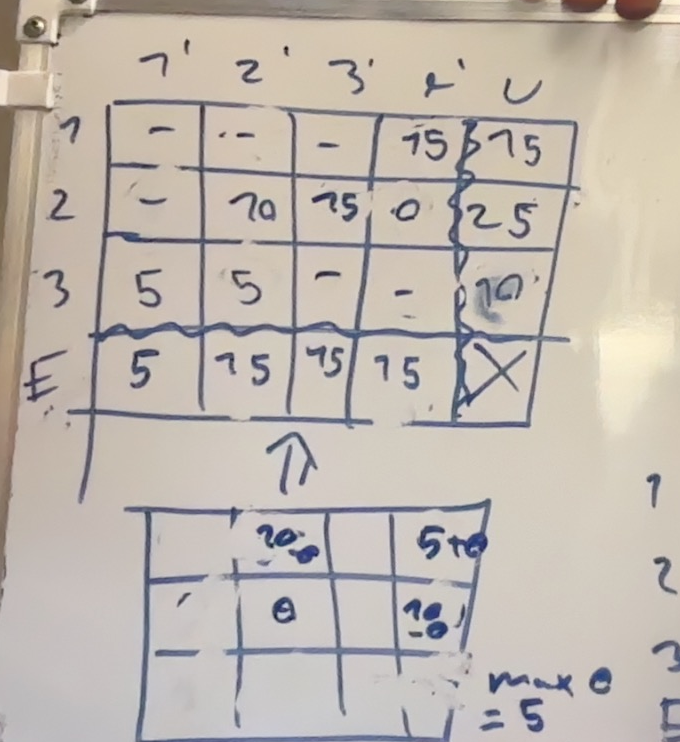 1' 2' 3' 4' U
1 - -- - 15 15
2 - 10 15 0 25
3 5 5 - - 10
E 5 15 15 15 X
⇑
10-θ 5+θ
θ 10-θ
max θ
= 5
1
2
3
E